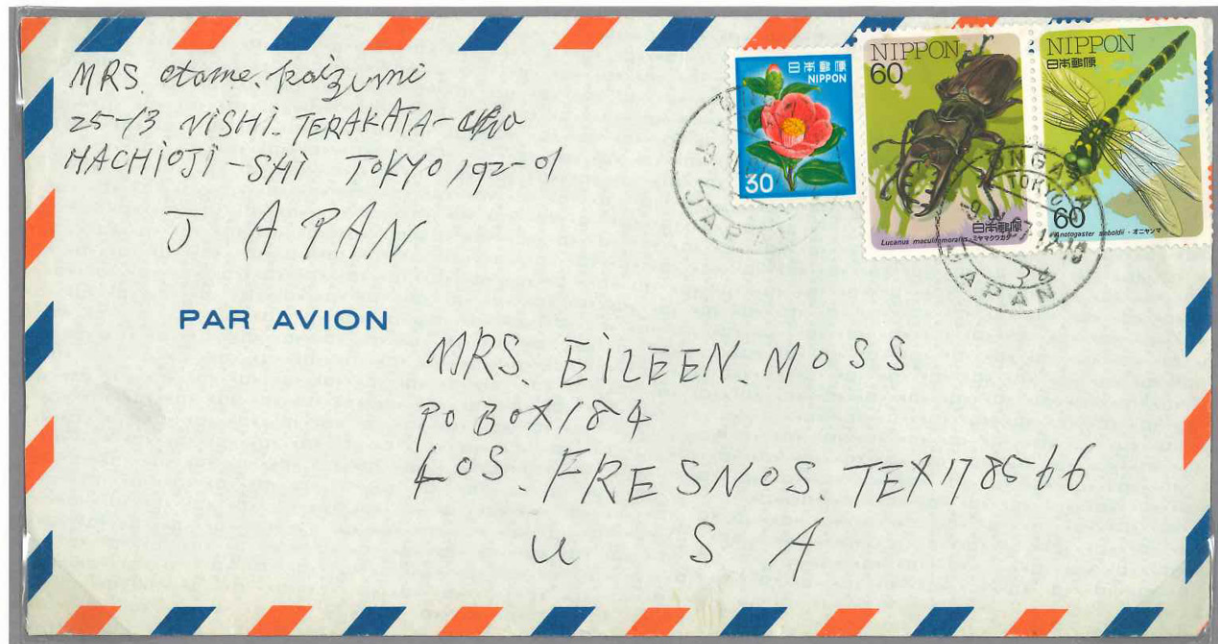 MRS. otome. koizumi
25-13 NiSHi. TERAKATA-cho
HACHiOJi-SHi TOKYO 192-01
J APAN
PAR AVION
日本郵便
NIPPON
30
NIPPON
60
日本郵便
Lucanus maculifemoratus・ミヤマクワガタ
NIPPON
日本郵便
60
Anotogaster sieboldii・オニヤンマ
JAPAN
TOKYO
JAPAN
MRS. EiLEEN. MOSS
PO BOX 184
LOS. FRESNOS. TEX 78566
U S A